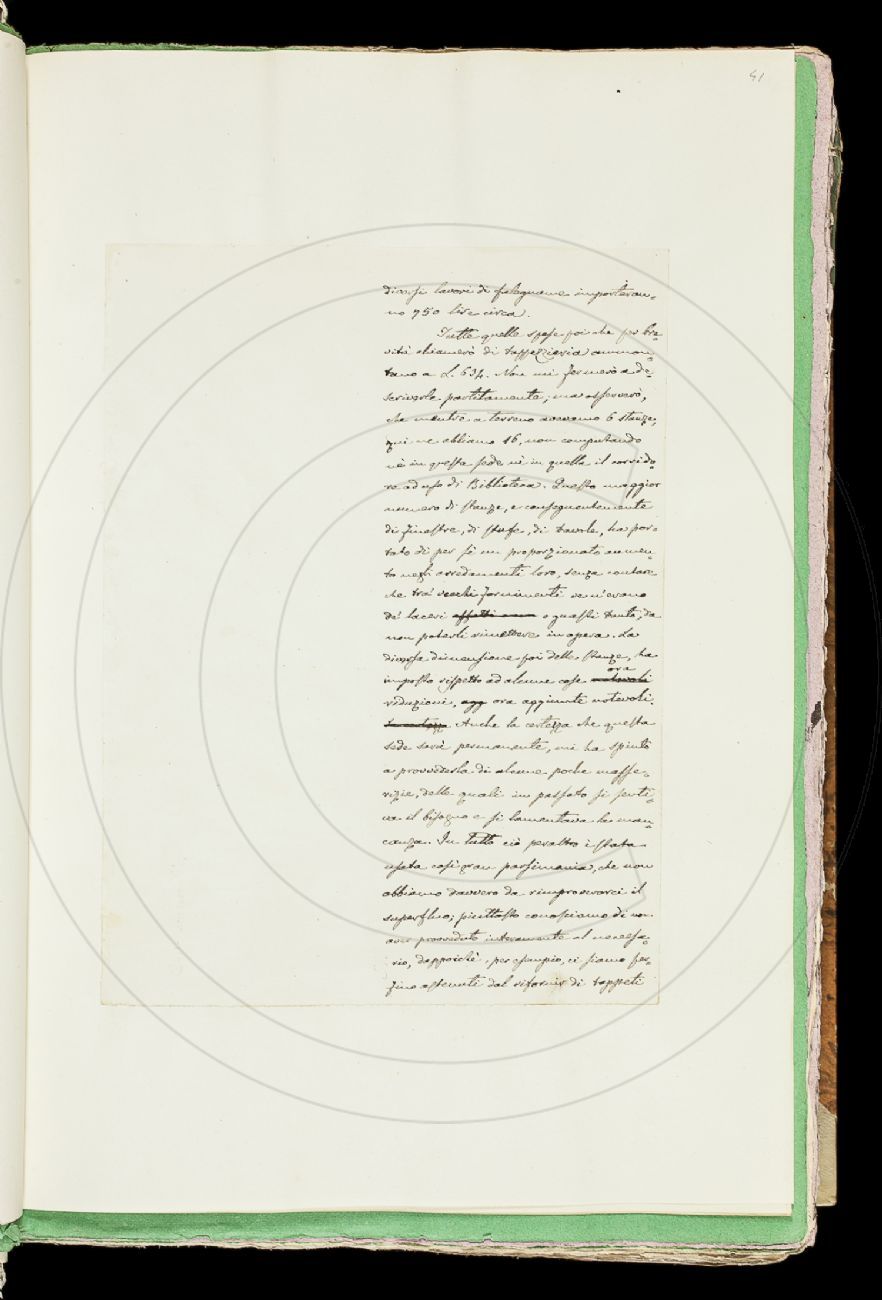 41
diversi lavori di falegname importeran=
no 750 lire circa.
Tutte quelle spese poi che per bre=
vità chiamerò di tappezzieria ammon=
tano a L. 634. Non mi fermerò a de=
scriverle partitamente; ma osserverò,
che mentre a terreno avevamo 6 stanze,
qui ne abbiamo 16, non computando
nè in questa sede nè in quella il corrido=
re ad uso di Biblioteca. Questo maggior
numero di stanze, e conseguentemente
di finestre, di stufe, di tavole, ha por=
tato di per sè un proporzionato aumen=
to negli arredamenti loro, senza contare
che tra' vecchi fornimenti ve n'erano
de' laceri e guasti tanto, da
non poterli rimettere in opera. La
diversa dimensione poi delle stanze, ha
imposto rispetto ad alcune cose ora
riduzioni, ora aggiunte notevoli.
Anche la certezza che questa
sede sarà permanente, mi ha spinto
a provvederla di alcune poche masse=
rizie, delle quali in passato si senti=
va il bisogno e si lamentava la man=
canza. In tutto ciò peraltro è stata
usata così gran parsimonia, che non
abbiamo davvero da rimproverarci il
superfluo; piuttosto conosciamo di non
aver provveduto interamente al necessa=
rio, dappoichè, per esempio, ci siamo per=
fino astenuti dal rifornir di tappeti